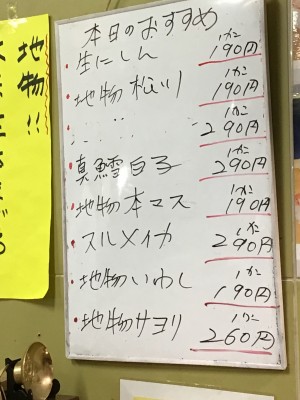 本日のおすすめ
生にしん 1カン 190円
地物 松川 1カン 190円
〃 〃 290円
真鱈白子 1カン 290円
地物本マス 1カン 190円
スルメイカ 1カン 290円
地物いわし 1カン 190円
地物サヨリ 1カン 260円
地物!!